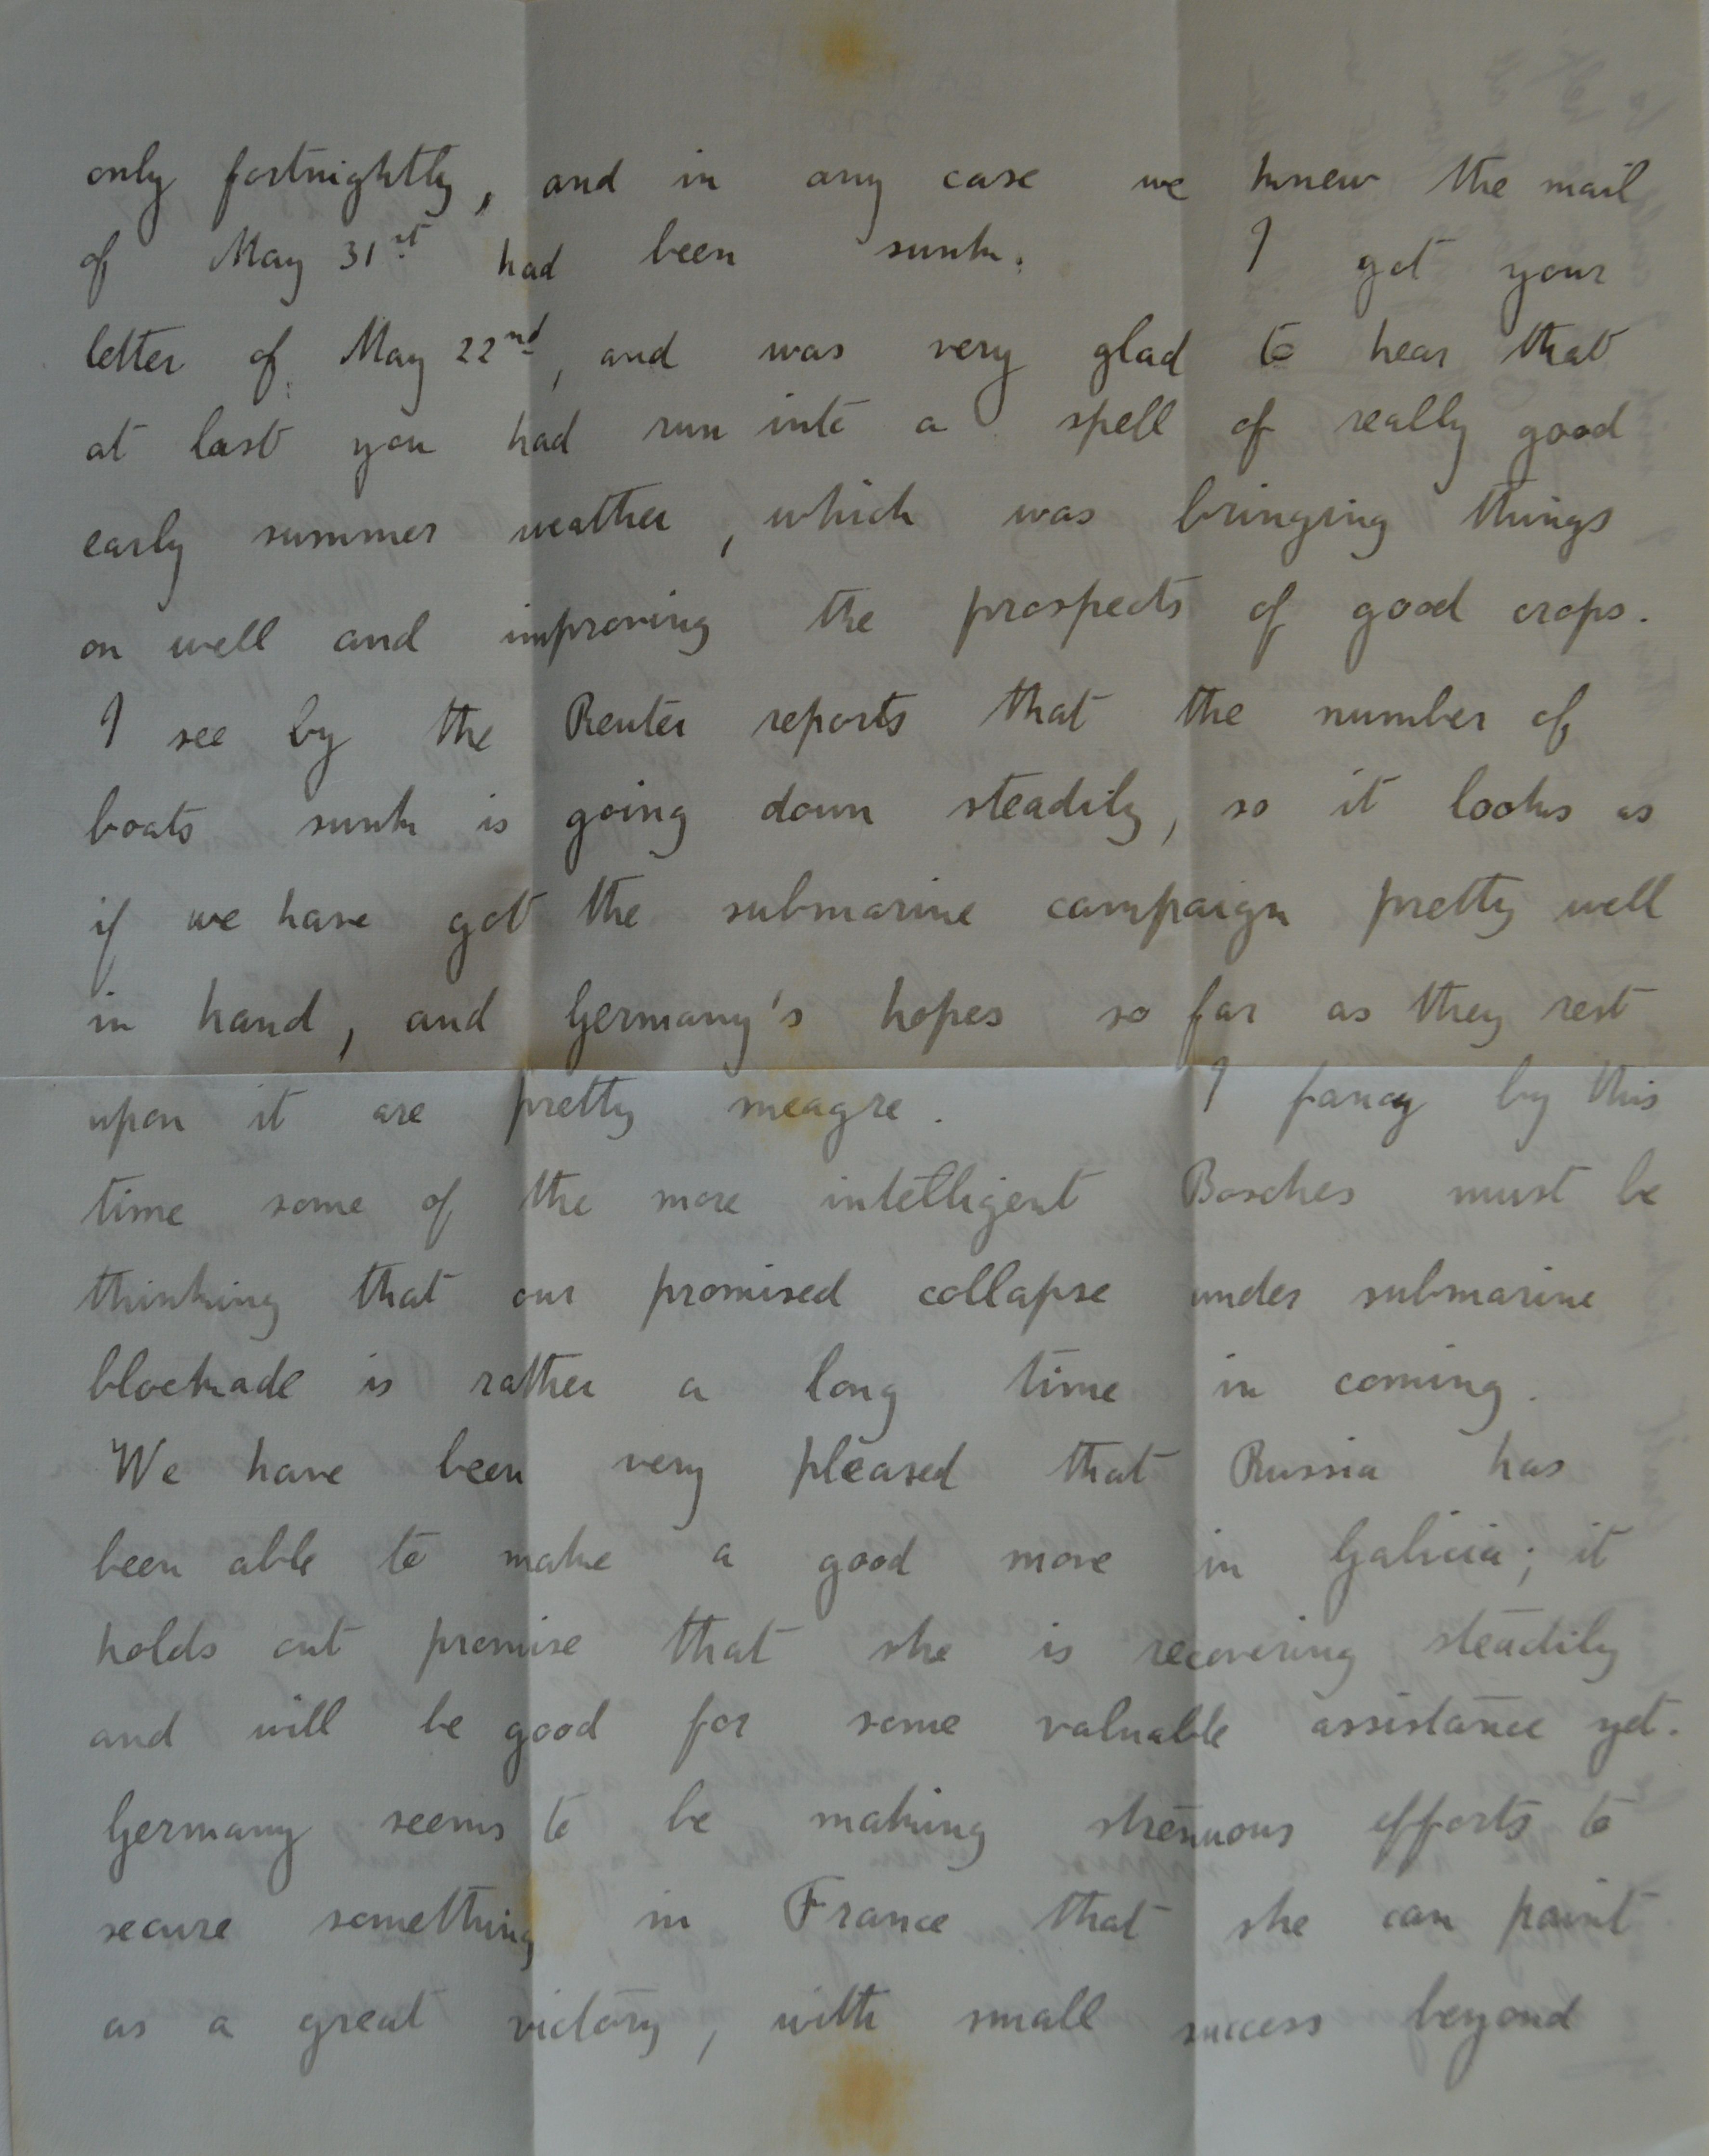 only fortnightly, and in any case we knew the mail
of May 31st had been sunk. I got your
letter of May 22nd, and was very glad to hear that
at last you had run into a spell of really good
early summer weather, which was bringing things
on well and improving the prospects of good crops.
I see by the Reuter reports that the number of
boats sunk is going down steadily, so it looks as
if we have got the submarine campaign pretty well
in hand, and Germany's hopes so far as they rest
upon it are pretty meagre. I fancy by this
time some of the more intelligent Bosches must be
thinking that our promised collapse under submarine
blockade is rather a long time in coming.
We have been very pleased that Russia has
been able to make a good move in Galicia; it
holds out promise that she is recovering steadily
and will be good for some valuable assistance yet.
Germany seems to be making strenuous efforts to
secure something in France that she can paint
as a great victory, with small success beyond